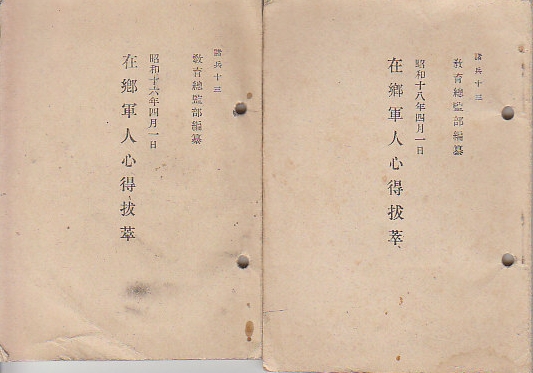 諸兵十三
敎育總監部編纂
昭和十六年四月一日
在鄕軍人心得拔萃
諸兵十三
敎育總監部編纂
昭和十八年四月一日
在鄕軍人心得拔萃